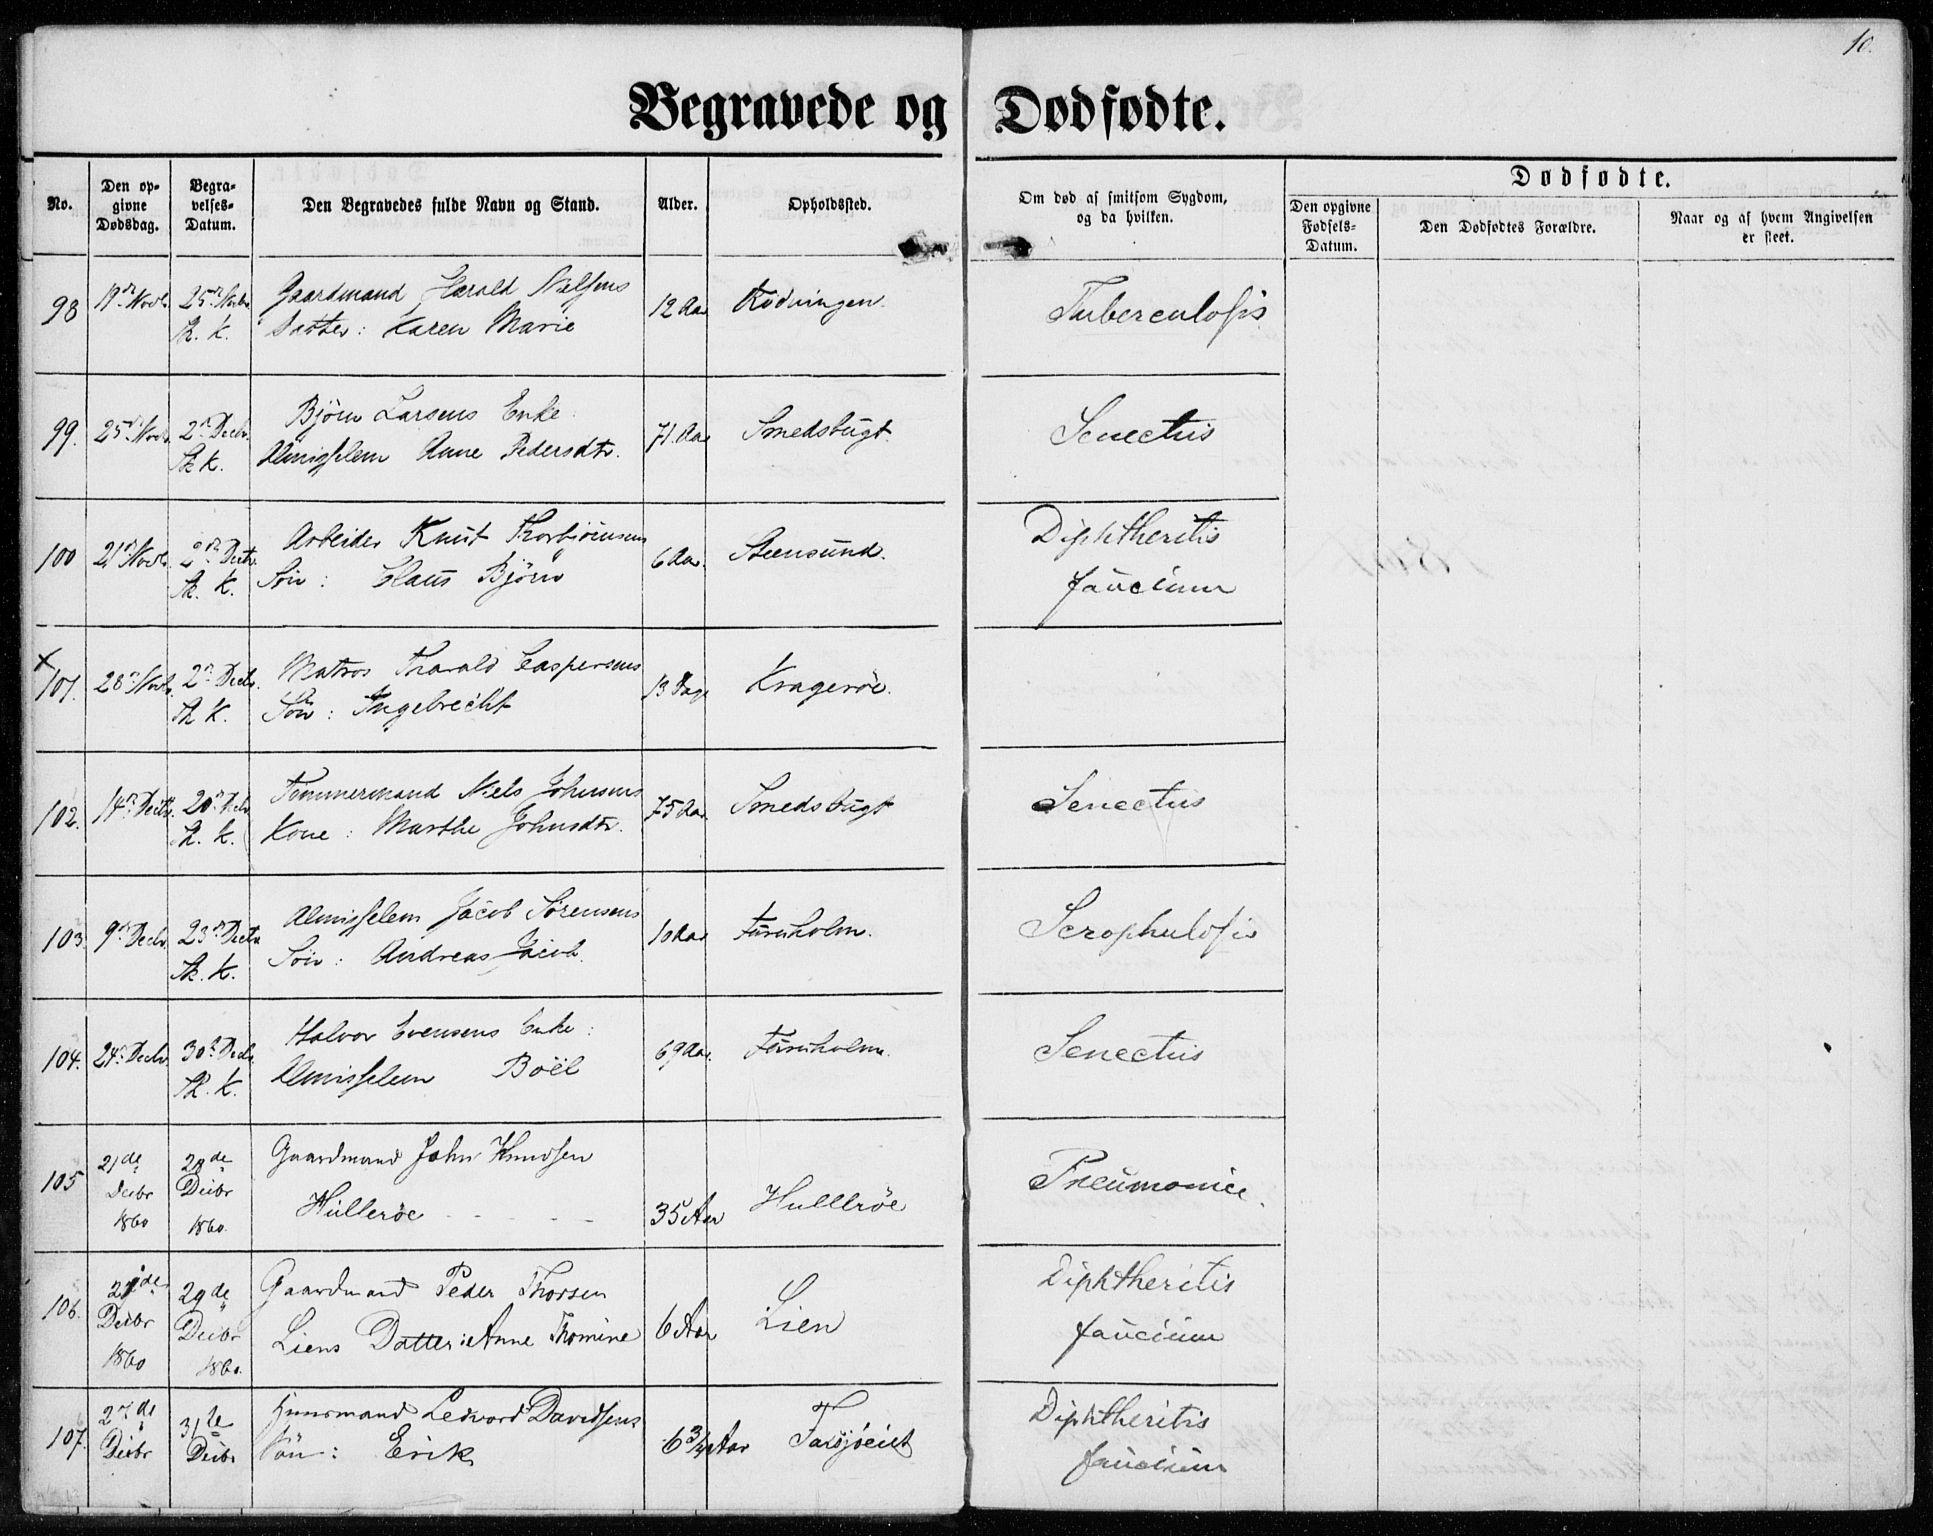 10.
Begravede og Dødfødte.
No.
Den op-
givne
Dødsdag.
Begra-
velses-
Datum.
Den Begravedes fulde Navn og Stand.
Alder.
Opholdssted.
Om død af smitsom Sygdom,
og da hvilken.
Dødfødte.
Den opgivne
Fødsels-
Datum.
Den Dødfødtes Forældre.
Naar og af hvem Angivelsen
er skeet.
98 19de Novb. 25de Novbr Gaardmand Harald Nielsens 12 Aar Rødningen. Tuberculosis
Th. K. Datter: Karen Marie
99. 25de Novb. 2den Decbr. Bjørn Larsens Enke: 71 Aar Smedsbugt. Senectus
Th K. Almisselem Anne Pedersdtr.
100 21de Novb. 2den Decbr. Arbeider Knut Thorbjörnsens 6 Aar. Steensund. Diphtheritis
Th. K. Søn: Claus Bjørn faucium
101. 28de Novb. 2den Decbr. Matros Tharald Caspersens 13 Dage Kragerøe.
Th K. Søn: Ingebrecht
102. 14de Decbr. 20de Decbr Tømmermand Niels Johnsens 75 Aar. Smedsbugt Senectus
Th. K. Kone: Marthe Johnsdtr.
103. 9de Decbr. 23de Decbr Almisselem Jacob Sørensens 10 Aar Furuholm. Scrophulosis
Th. K. Søn: Andreas Jacob.
104. 24de Decbr. 30te Decbr. Halvor Evensens Enke: 69 Aar. Furuholm. Senectus
Th. K. Almisselem Boël
105 21de Decbr 1860 28de Decbr 1860. Gaardmand John Knudsen
Hullerøe 35 Aar Hullerøe Pneumonie.
106. 21de Decbr 1860 29de Decbr 1860. Gaardmand Peder Thorsen 6 Aar Lien Diphtheritis
Liens Datter: Anne Thomine faucium
107. 27de Decbr 31te Decbr Huusmand Ledvord Davidsens Diphtheritis
Søn: Erik 6 3/4 Aar faucium